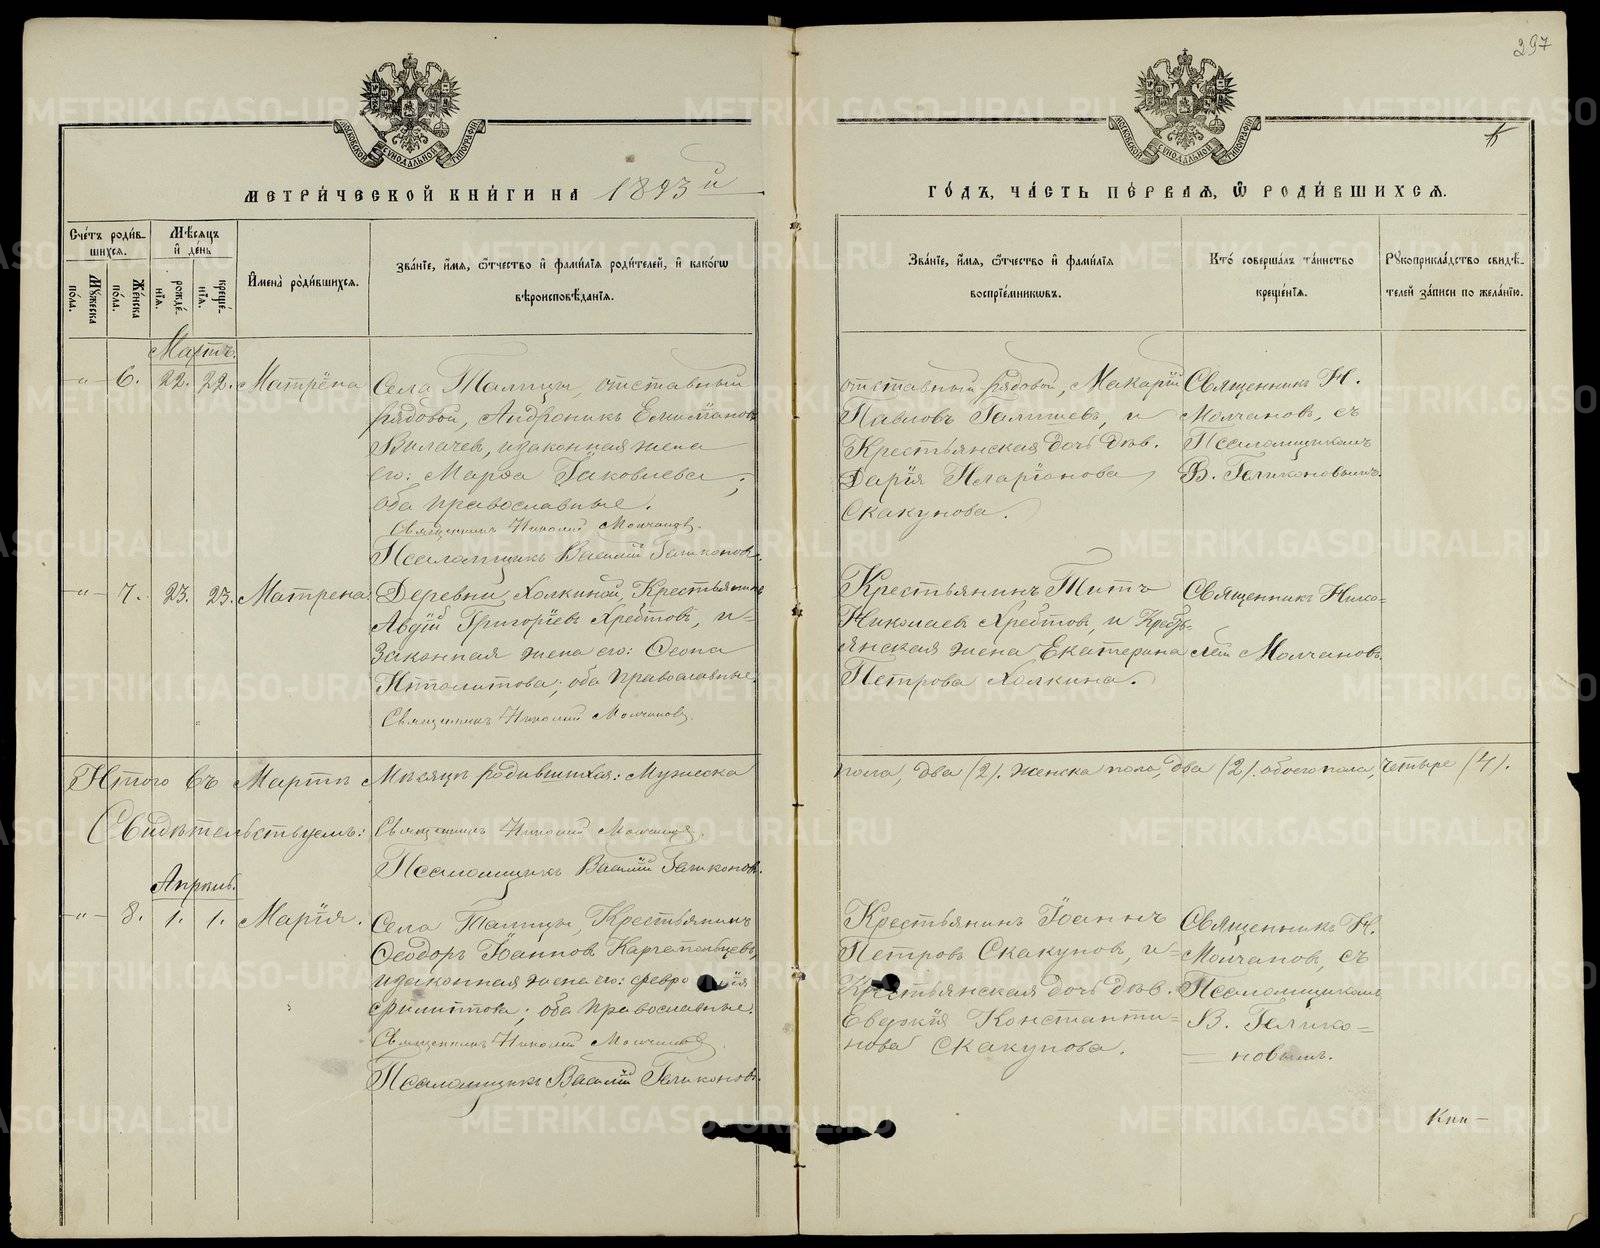 297
МОСКОВСКОЙ СѴНОДАЛЬНОЙ ТИПОГРАФІИ
МОСКОВСКОЙ СѴНОДАЛЬНОЙ ТИПОГРАФІИ
МЕТРИ́ЧЕСКОЙ КНИ́ГИ НА 1893й
ГО́ДЪ, ЧА́СТЬ ПЕ́РВАЯ, Ѿ РОДИ́ВШИХСЯ.
Сче́тъ роди́в-
шихся.
Мѣ́сяцъ
и де́нь
Му́жеска
по́ла.
Же́нска
по́ла.
рожде́-
нія.
креще́-
нія.
Имена̀ роди́вшихся.
Зва́ніе, и́мя, ѻ҆́тчество и фами́лія роди́телей, и како́гѡ
вѣроисповѣ́данія.
Зва́ніе, и́мя, ѻ҆́тчество и фами́лія
воспріе́мникѡвъ.
Кто̀ соверша́лъ та́инство
креще́нія.
Рꙋкоприкла́дство свидѣ́-
телей за́писи по жела́нію.
Мартъ.
-"- 6. 22. 22. Матрёна
Села Талицы, отставный
рядовой, Андроникъ
Вилачев, и законная жена
его: Марѳа Іаковлева;
оба православные.
Священникъ Николай Молчановъ.
Псаломщикъ Василій Геликоновъ.
отставный рядовой, Макарій
Павловъ Галишевъ, и
Крестьянская дочь дѣв.
Дарія Иларіонова
Скакунова.
Священникъ Н.
Молчановъ, съ
Псаломщикомъ
В. Геликоновымъ.
-"- 7. 23. 23. Матрена.
Деревни Холкиной, Крестьянинъ
Авдій Григоріевъ Хребтовъ, и
Законная жена его: Ѳеона
Ипполитова; оба православные.
Священникъ Николай Молчановъ.
Крестьянинъ Титъ
Николаевъ Хребтовъ, и Кресть-
янская жена Екатерина
Петрова Холкина.
Священникъ Нико-
лай Молчановъ.
Итого въ Мартѣ Мѣсяцѣ родившихся: Мужеска
пола, два (2). женска пола, два (2). обоего пола, четыре (4).
Свидѣтельствуемъ: Священникъ Николай Молчановъ.
Псаломщикъ Василій Геликоновъ.
Апрѣль.
-"- 8. 1. 1. Марія.
Села Талицы, Крестьянинъ
Ѳеодоръ Іоанновъ
и законная жена его: Февро нія
Филиппова; оба православные.
Священникъ Николай Молчановъ.
Псаломщикъ Василій Геликоновъ.
Крестьянинъ Іоаннъ
Петровъ Скакуновъ, и
Крестьянская дочь дѣв.
Евдокія Константи-
нова Скакунова.
Священникъ Н.
Молчановъ, съ
Псаломщикомъ
В. Гелико-
новымъ.
METRIKI.GASO-URAL.RU